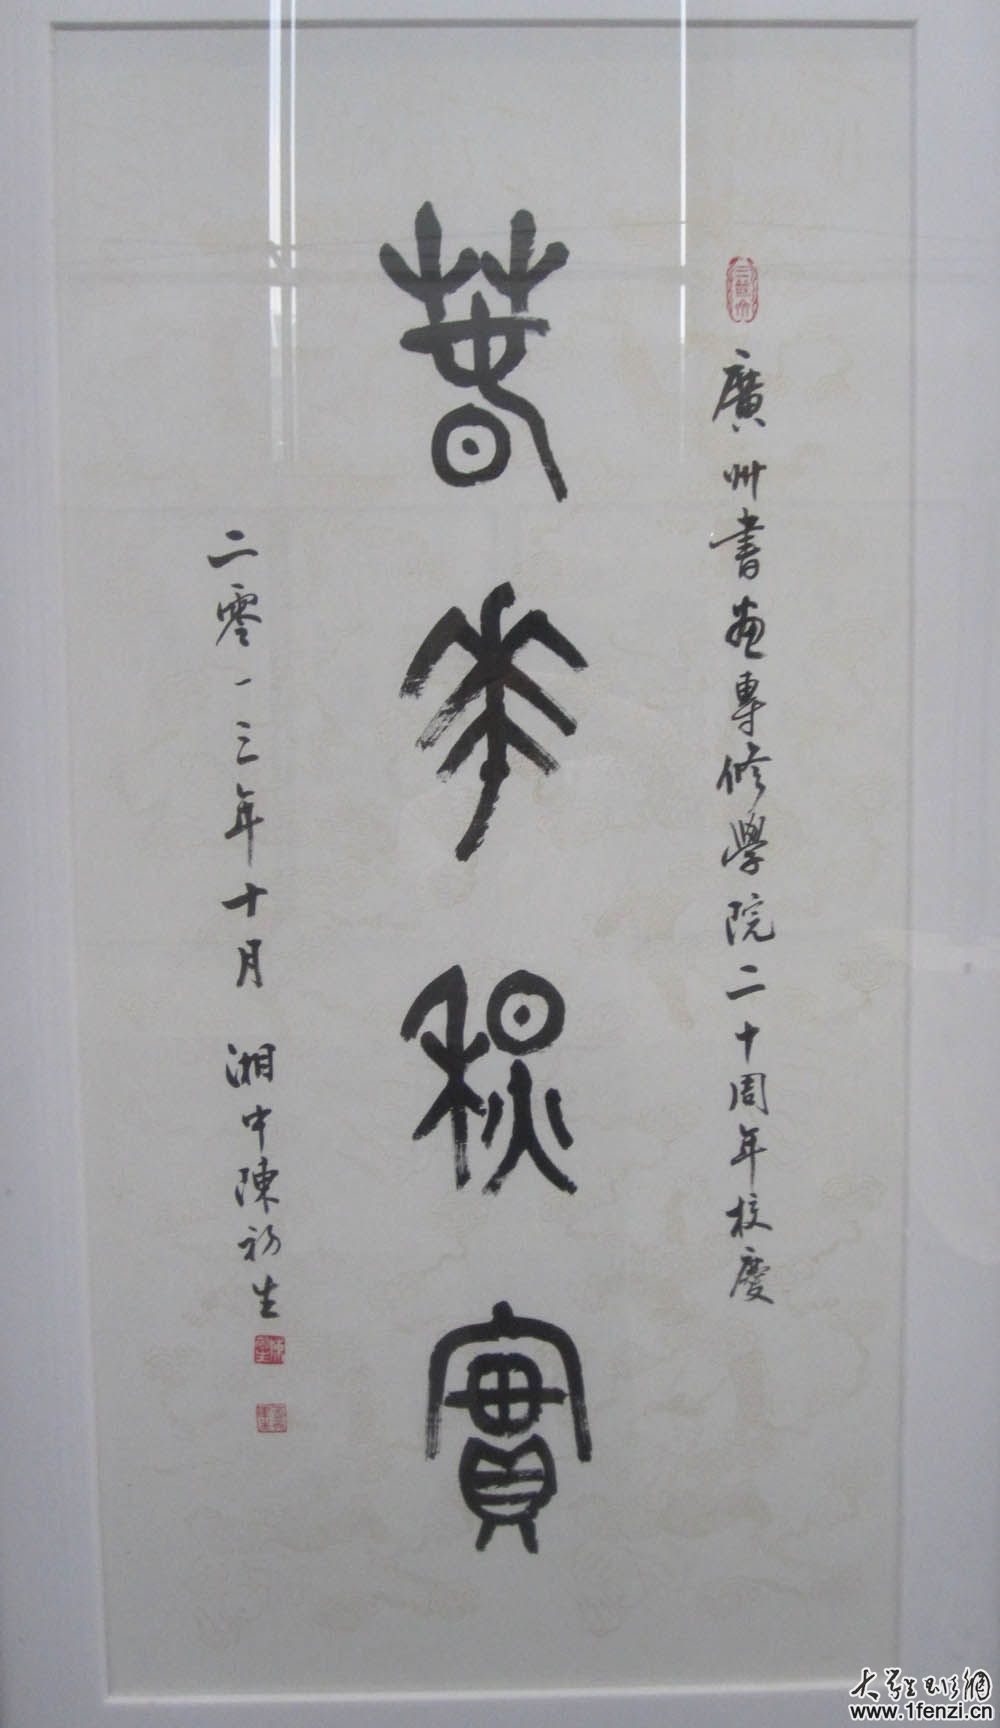 廣州書畫專修學院二十周年校慶
萅華秋實
二零一三年十月 湘中陳初生
大學生團網
www.1fenzi.cn